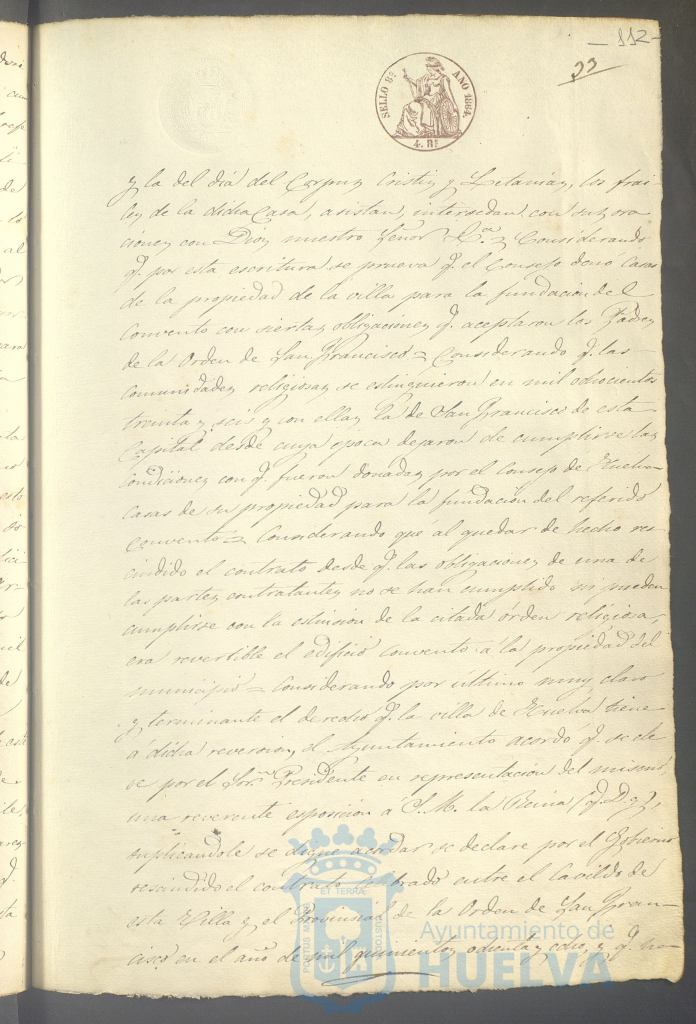 - 112-
33
SELLO 8º AÑO 1864.
4. Rs
y la del dia del Corpus Cristi, y Letanias, los frai-
les de la dicha Casa, asistan, intersedan con sus ora
ciones con Dios nuestro Señor &.ª = Considerando
q. por esta escritura se prueva q. el Consejo donó Casas
de la propiedad de la villa para la fundacion del
Convento con siertas obligaciones q. aceptaron los Padres
de la Orden de San Francisco = Considerando q. las
comunidades religiosas se estinguieron en mil ochocientos
treinta y seis y con ellas la de San Francisco de esta
Capital desde cuya epoca dejaron de cumplirse las
condiciones con q. fueron donadas por el Consejo de Huelva
Casas de su propiedad para la fundacion del referido
Convento = Considerando que al quedar de hecho res
cindido el contrato desde q. las obligaciones de una de
las partes contratantes no se han cumplido ni pueden
cumplirse con la estincion de la citada órden religiosa,
era revertible el edificio convento á la propiedad del
municipio = Considerando por ultimo muy claro
y terminante el derecho q. la villa de Huelva tiene
á dicha reversion, el Ayuntamiento acordó q. se ele
ve por el Sor. Presidente en representacion del mismo,
una reverente esposicion á S. M. la Reina (q. D. g.),
suplicandole se digne acordar se declare por el Gobierno
rescindido el contrato celebrado entre el Cavildo de
esta Villa y el Provinsial de la Orden de San Fran-
cisco en el año de mil quinientos ochenta y ocho, y q. ha-
PORTUS MARIS ET TERRAE CUSTODIA
Ayuntamiento de
HUELVA